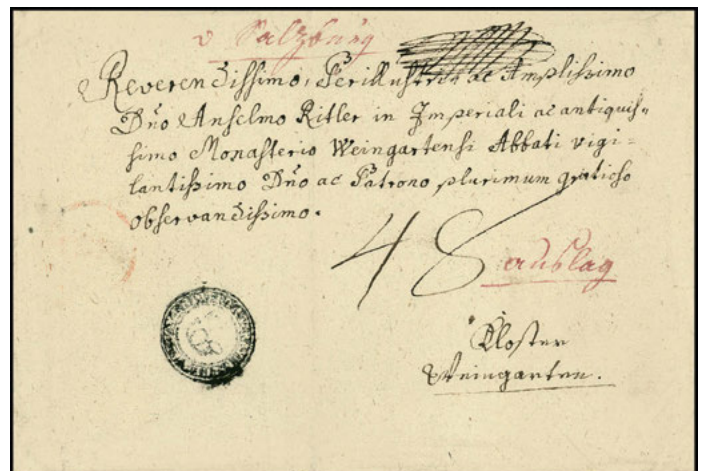 v Salzburg
Reverendissimo, Perillustri ac Amplissimo
Dño Anselmo Ritler in Imperiali ac antiquis=
simo Monasterio Weingartensi Abbati vigi=
lantissimo Dño ac Patrono plurimum gratioso
observandissimo.
48 auslag
Closter
Weingarten.